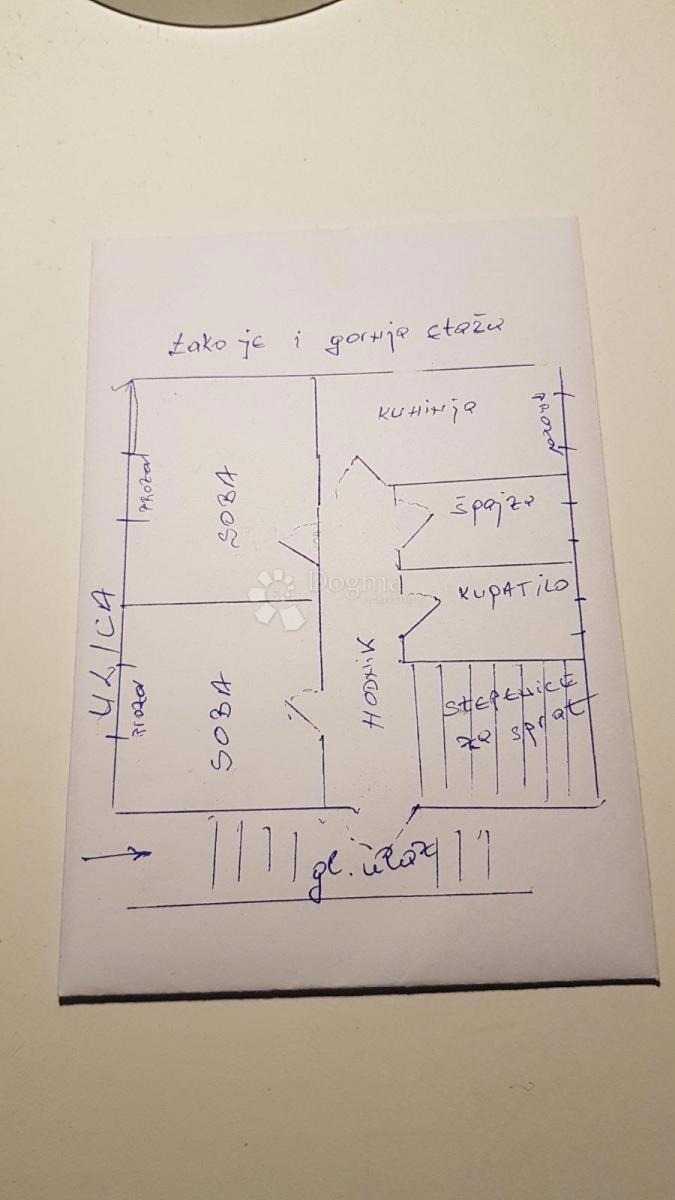 tako je i gornja etaža
kuhinja
prozor
SOBA
PROZOR
špajza
Dogma
nekretnine
KUPATILO
ULICA
HODNIK
SOBA
PROZOR
STEPENICE
za sprat
gl. ulaz